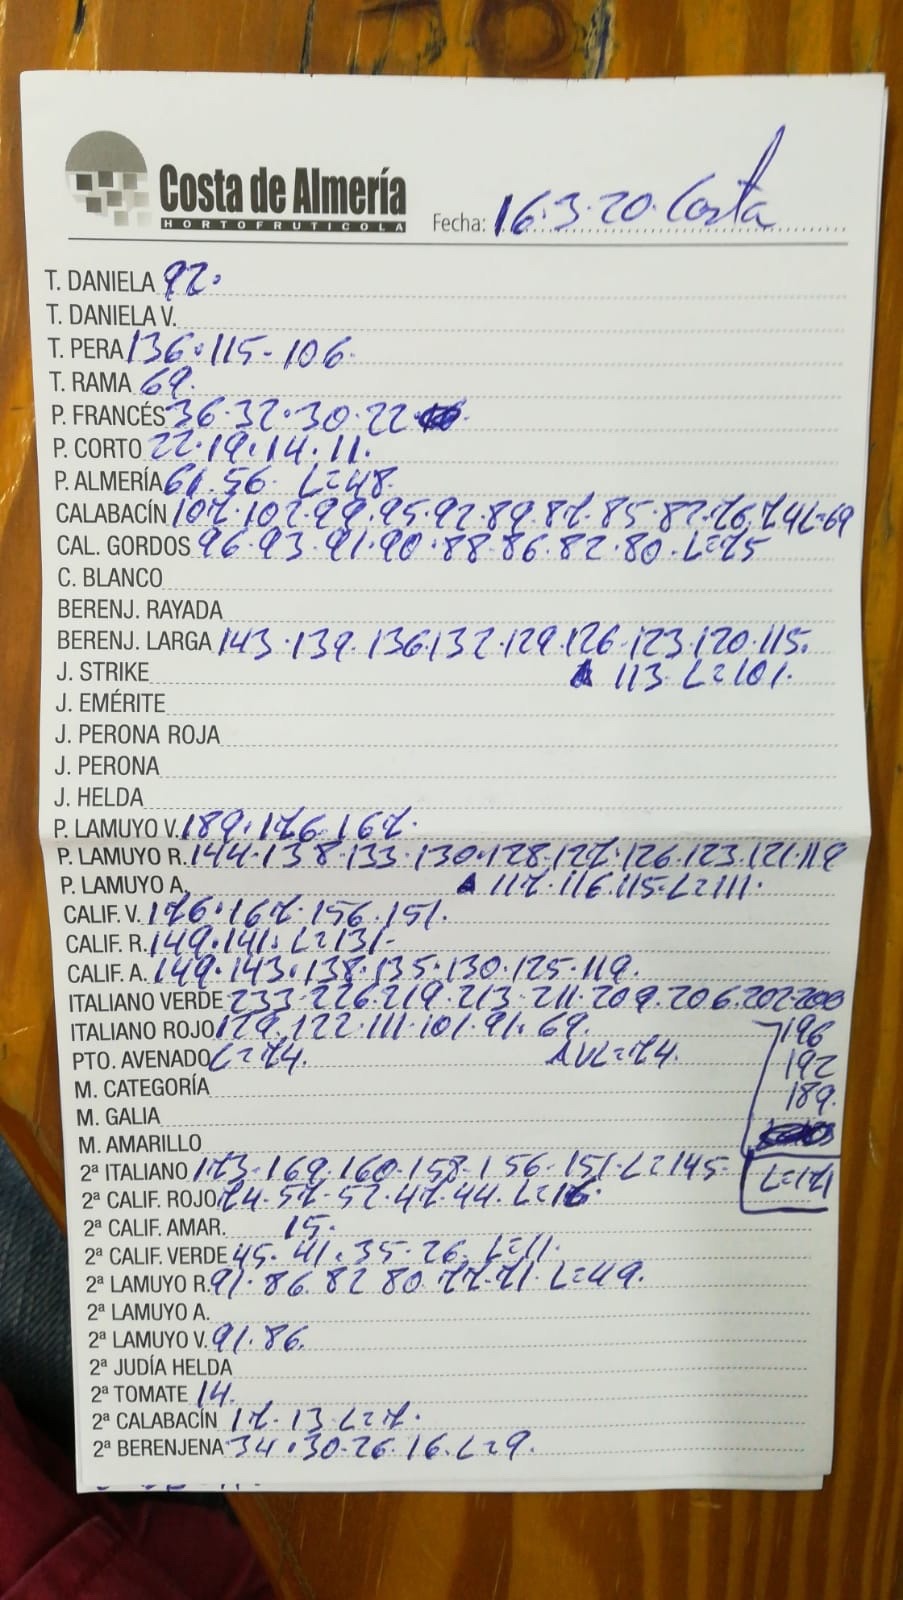 Costa de Almería
HORTOFRUTICOLA
Fecha: 16.3.20. Costa
T. DANIELA 92.
T. DANIELA V.
T. PERA 136.115-106.
T. RAMA 69.
P. FRANCÉS 36.32.30.22
P. CORTO 22.19.14.11.
P. ALMERÍA 61.56. L=48.
CALABACÍN 107.102.99.95.92.89.87.85.82.76.74L=69
CAL. GORDOS 96.93.91.90.88.86.82.80.L=75
C. BLANCO
BERENJ. RAYADA
BERENJ. LARGA 143.139.136.132.129.126.123.120.115.
J. STRIKE
113. L=101.
J. EMÉRITE
J. PERONA ROJA
J. PERONA
J. HELDA
P. LAMUYO V. 189.176.167.
P. LAMUYO R. 144.138.133.130.128.127.126.123.121.119
P. LAMUYO A.
117.116.115-L=111.
CALIF. V. 176.167.156.151.
CALIF. R. 149.141. L=131-
CALIF. A. 149.143.138.135.130.125.119.
ITALIANO VERDE 233-226.219.213.211.209.206.202-200
ITALIANO ROJO 129.122.111.101.91.69.
196
PTO. AVENADO L=74. AVL=74.
192
M. CATEGORÍA
189.
M. GALIA
M. AMARILLO
2ª ITALIANO 173.169.160.158.156.151.L=145.
L=171
2ª CALIF. ROJO 74.57.52.47.44. L=16.
2ª CALIF. AMAR. 15.
2ª CALIF. VERDE 45.41.35.26. L=11.
2ª LAMUYO R. 91.86.82.80.77.71. L=49.
2ª LAMUYO A.
2ª LAMUYO V. 91.86.
2ª JUDÍA HELDA
2ª TOMATE 14.
2ª CALABACÍN 17.13.L=7.
2ª BERENJENA 34.30.26.16.L=9.